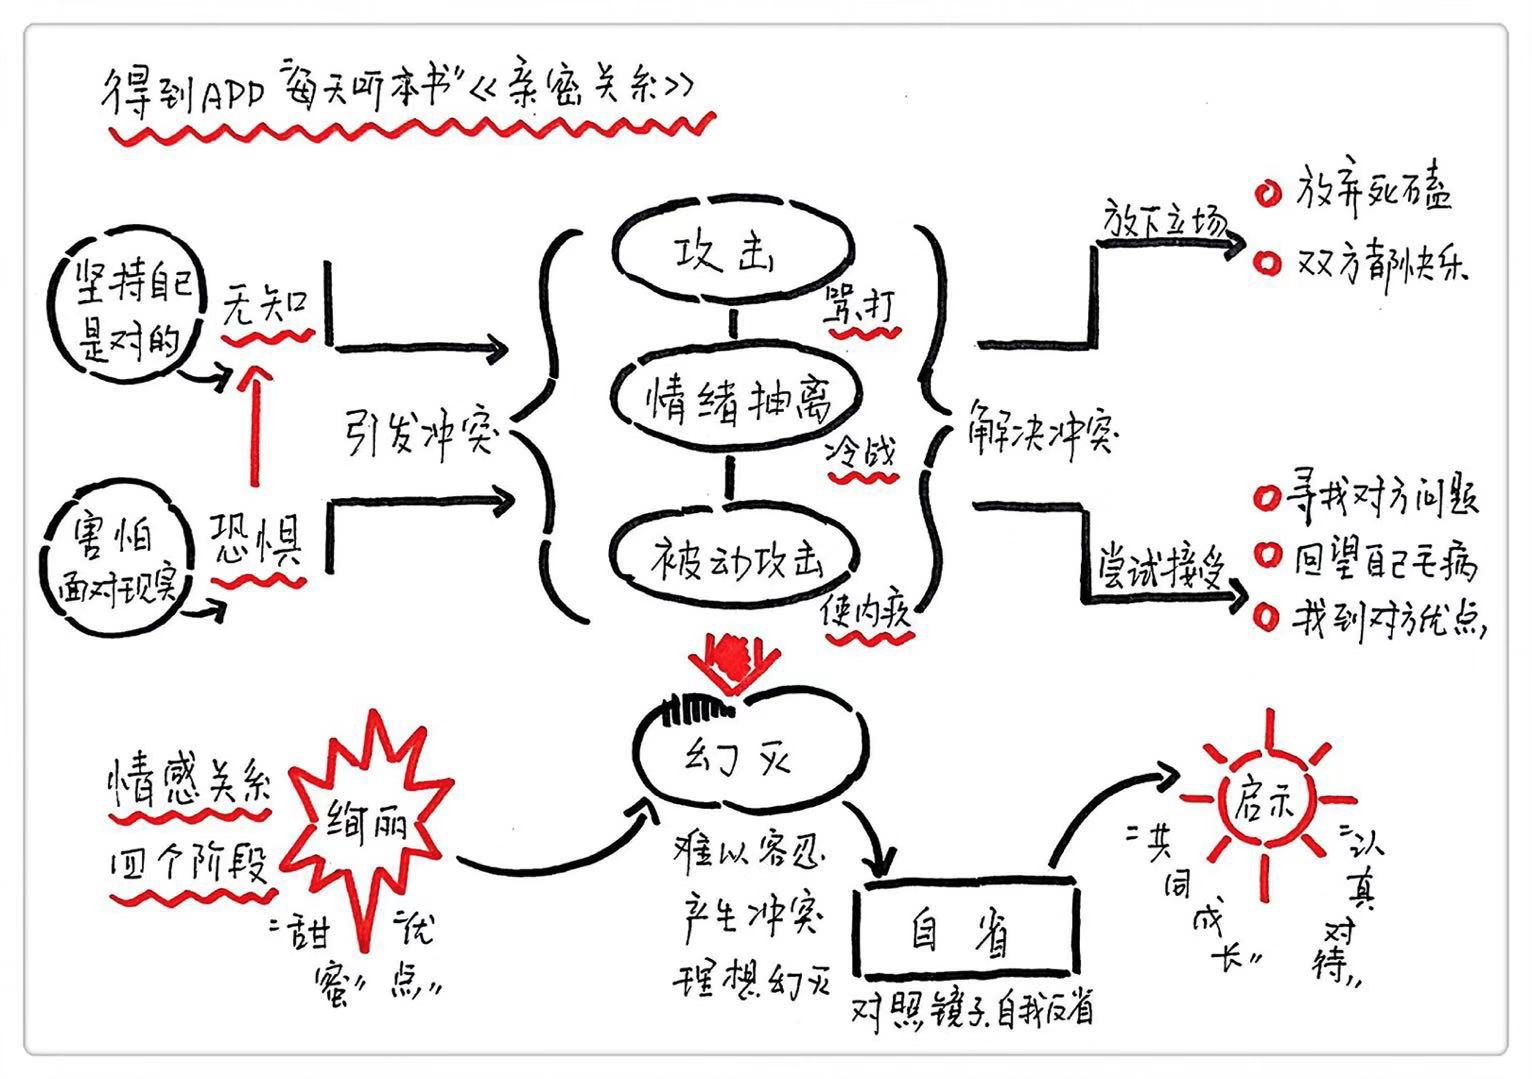 得到APP"每天听本书"《亲密关系》
坚持自己
是对的
无知
害怕
面对现实
恐惧
引发冲突
攻击
骂、打
情绪抽离
冷战
被动攻击
使内疚
解决冲突
放下立场
放弃死磕
双方都快乐
尝试接受
寻找对方问题
回望自己毛病
找到对方优点
情感关系
四个阶段
绚丽
"甜
蜜"
"优
点"
幻灭
难以容忍
产生冲突
理想幻灭
自省
对照镜子、自我反省
启示
"共
同
成
长"
"认
真
对
待"